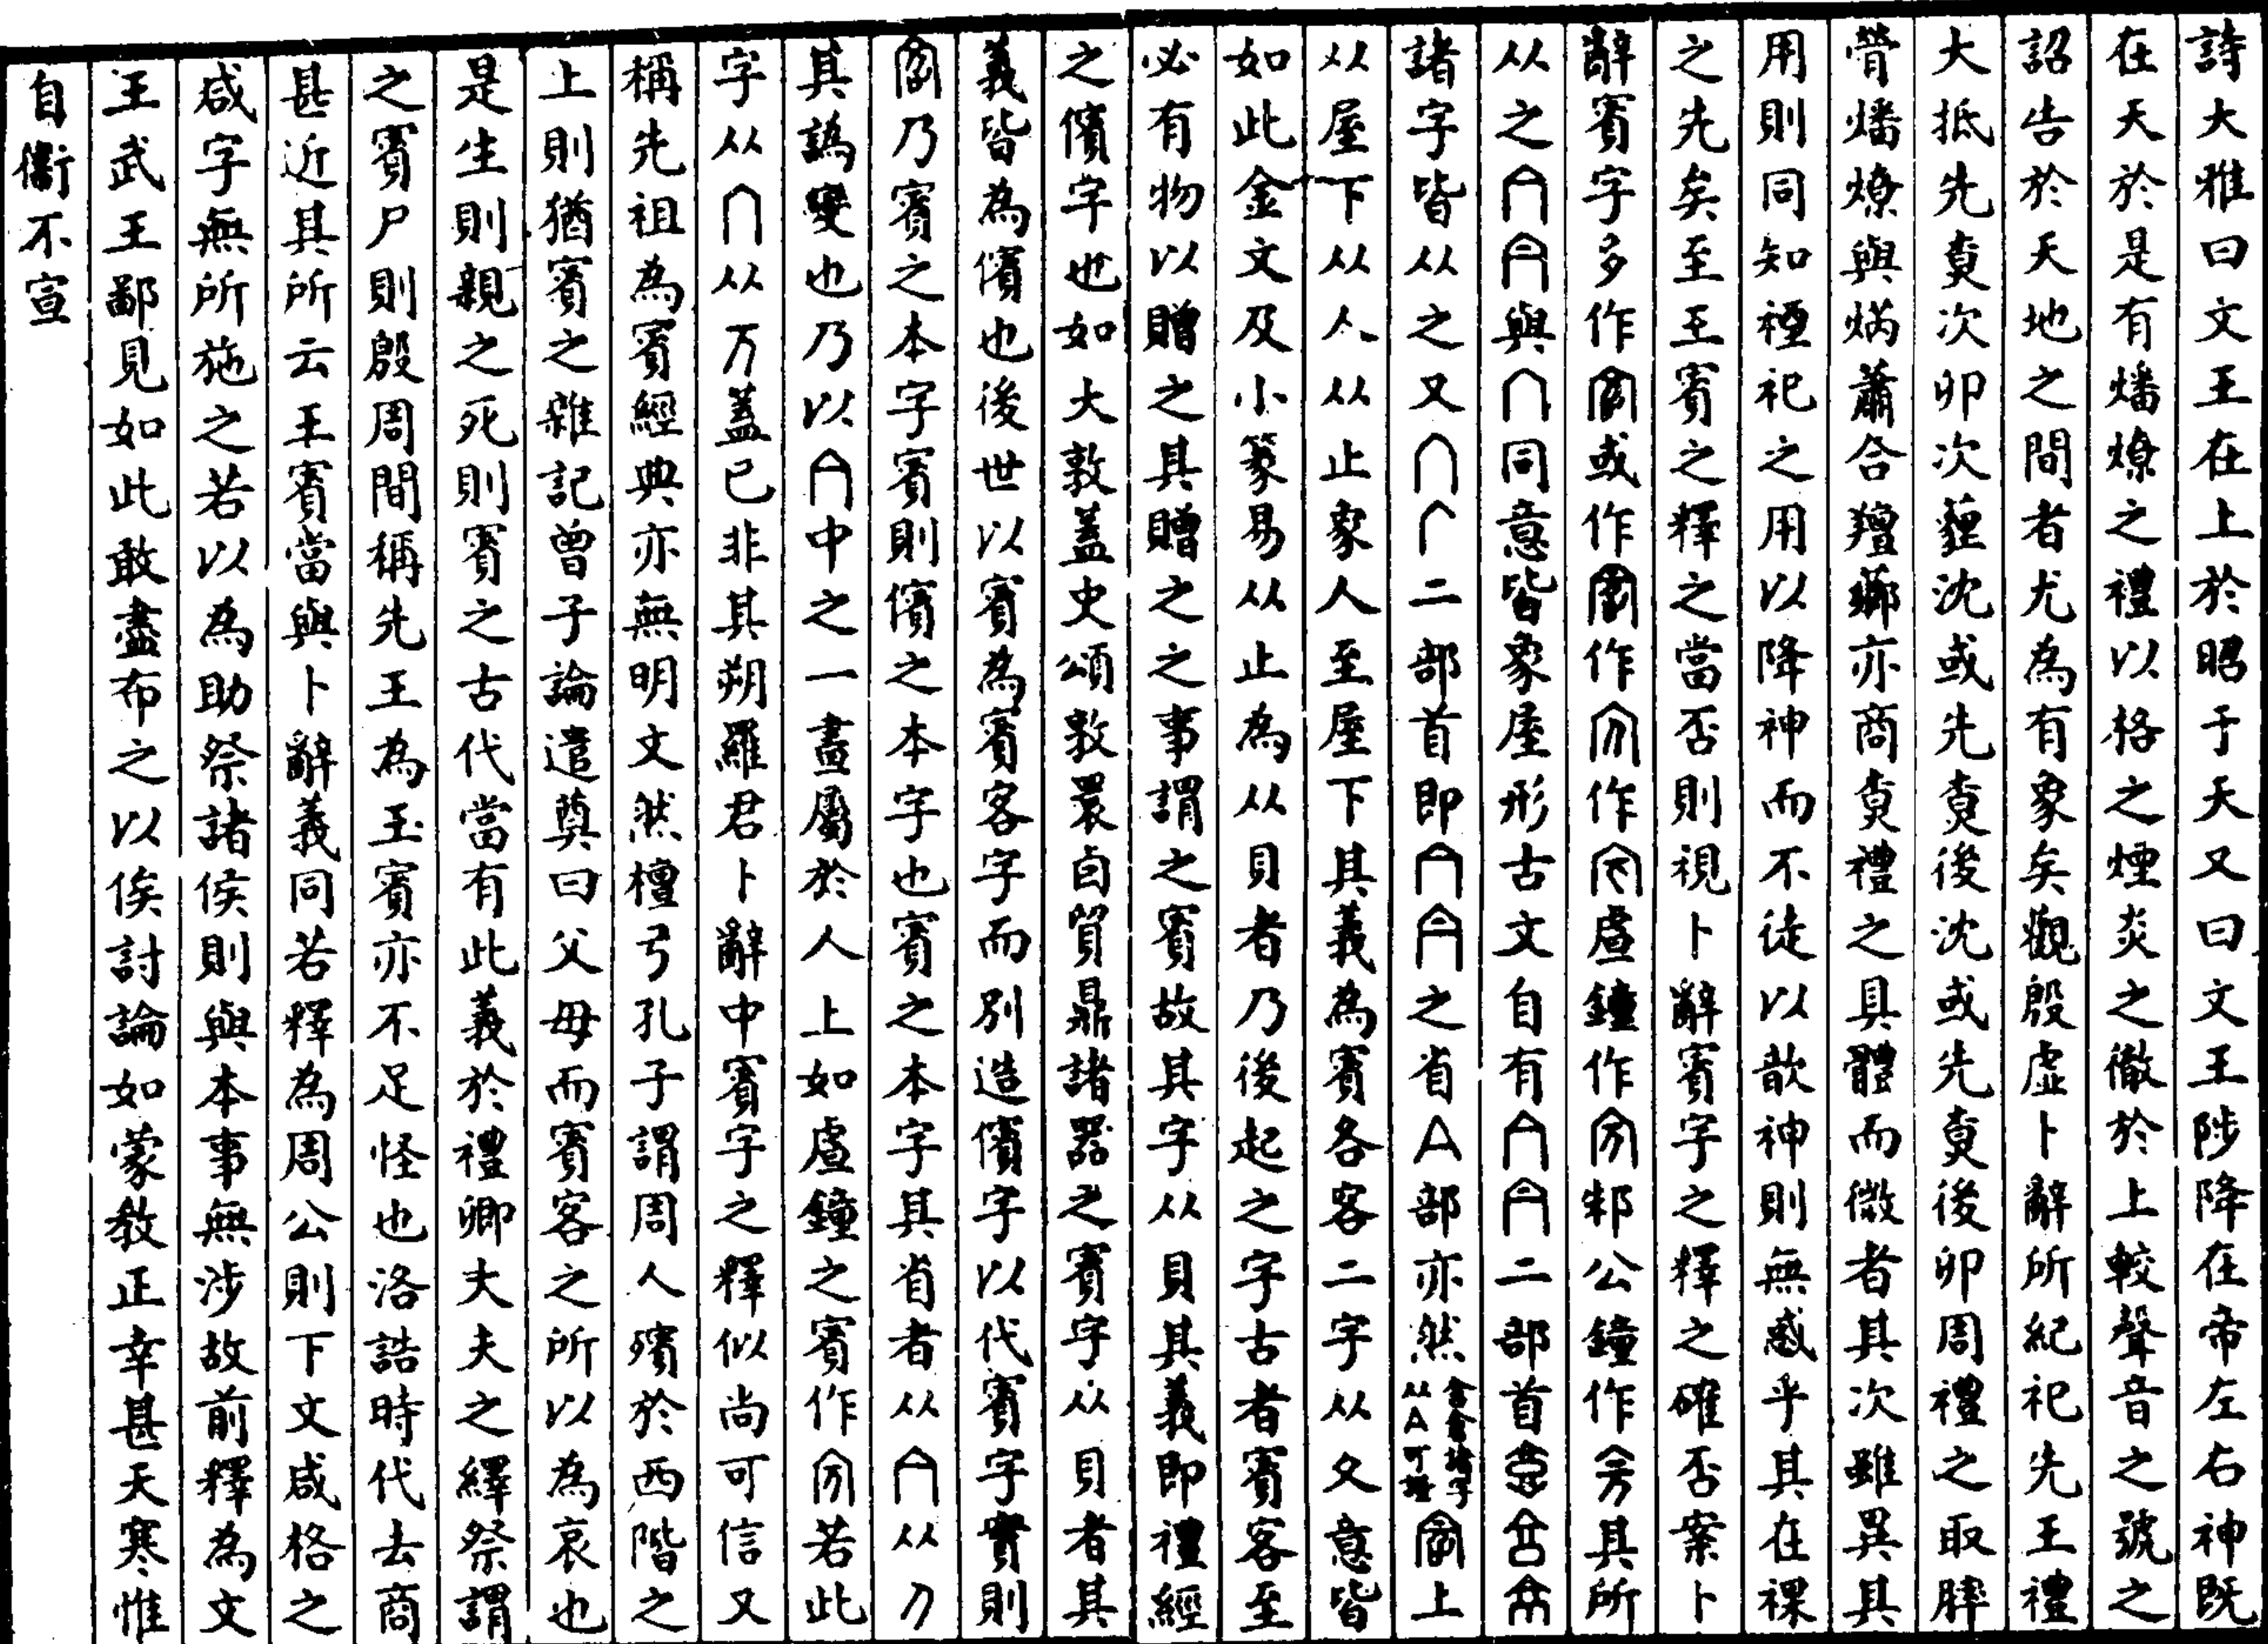 詩大雅曰文王在上於昭于天又曰文王陟降在帝左右神既
在天於是有燔燎之禮以格之煙炎之徹於上較聲音之號之
詔告於天地之間者尤為有象矣觀殷虛卜辭所紀祀先王禮
大抵先尞次卯次薶沈或先尞後沈或先尞後卯周禮之取膟
膋燔燎與焫蕭合羶薌亦商尞禮之具體而微者其次雖異其
用則同知禋祀之用以降神而不徒以歆神則無惑乎其在祼
之先矣至王賓之釋之當否則視卜辭賓字之釋之確否案卜
辭賓字多作或作作作虘鐘作邾公鐘作其所
从之與同意皆象屋形古文自有二部首
諸字皆从之又二部首即之省亼部亦然含會諸字从亼可證上
从屋下从人从止象人至屋下其義為賓各客二字从夊意皆
如此金文及小篆易从止為从貝者乃後起之字古者賓客至
必有物以贈之其贈之之事謂之賓故其字从貝其義即禮經
之儐字也如大敦蓋史頌敦睘卣貿鼎諸器之賓字从貝者其
義皆為儐也後世以賓為賓客字而別造儐字以代賓字實則
乃賓之本字賓則儐之本字也賓之本字其省者从从
其譌變也乃以中之一畫屬於人上如虘鐘之賓作若此
字从宀从万蓋已非其朔羅君卜辭中賓字之釋似尚可信又
稱先祖為賓經典亦無明文然檀弓孔子謂周人殯於西階之
上則猶賓之雜記曾子論遣奠曰父母而賓客之所以為哀也
是生則親之死則賓之古代當有此義於禮卿大夫之繹祭謂
之賓尸則殷周間稱先王為王賓亦不足怪也洛誥時代去商
甚近其所云王賓當與卜辭義同若釋為周公則下文咸格之
咸字無所施之若以為助祭諸侯則與本事無涉故前釋為文
王武王鄙見如此敢盡布之以俟討論如蒙教正幸甚天寒惟
自衞不宣